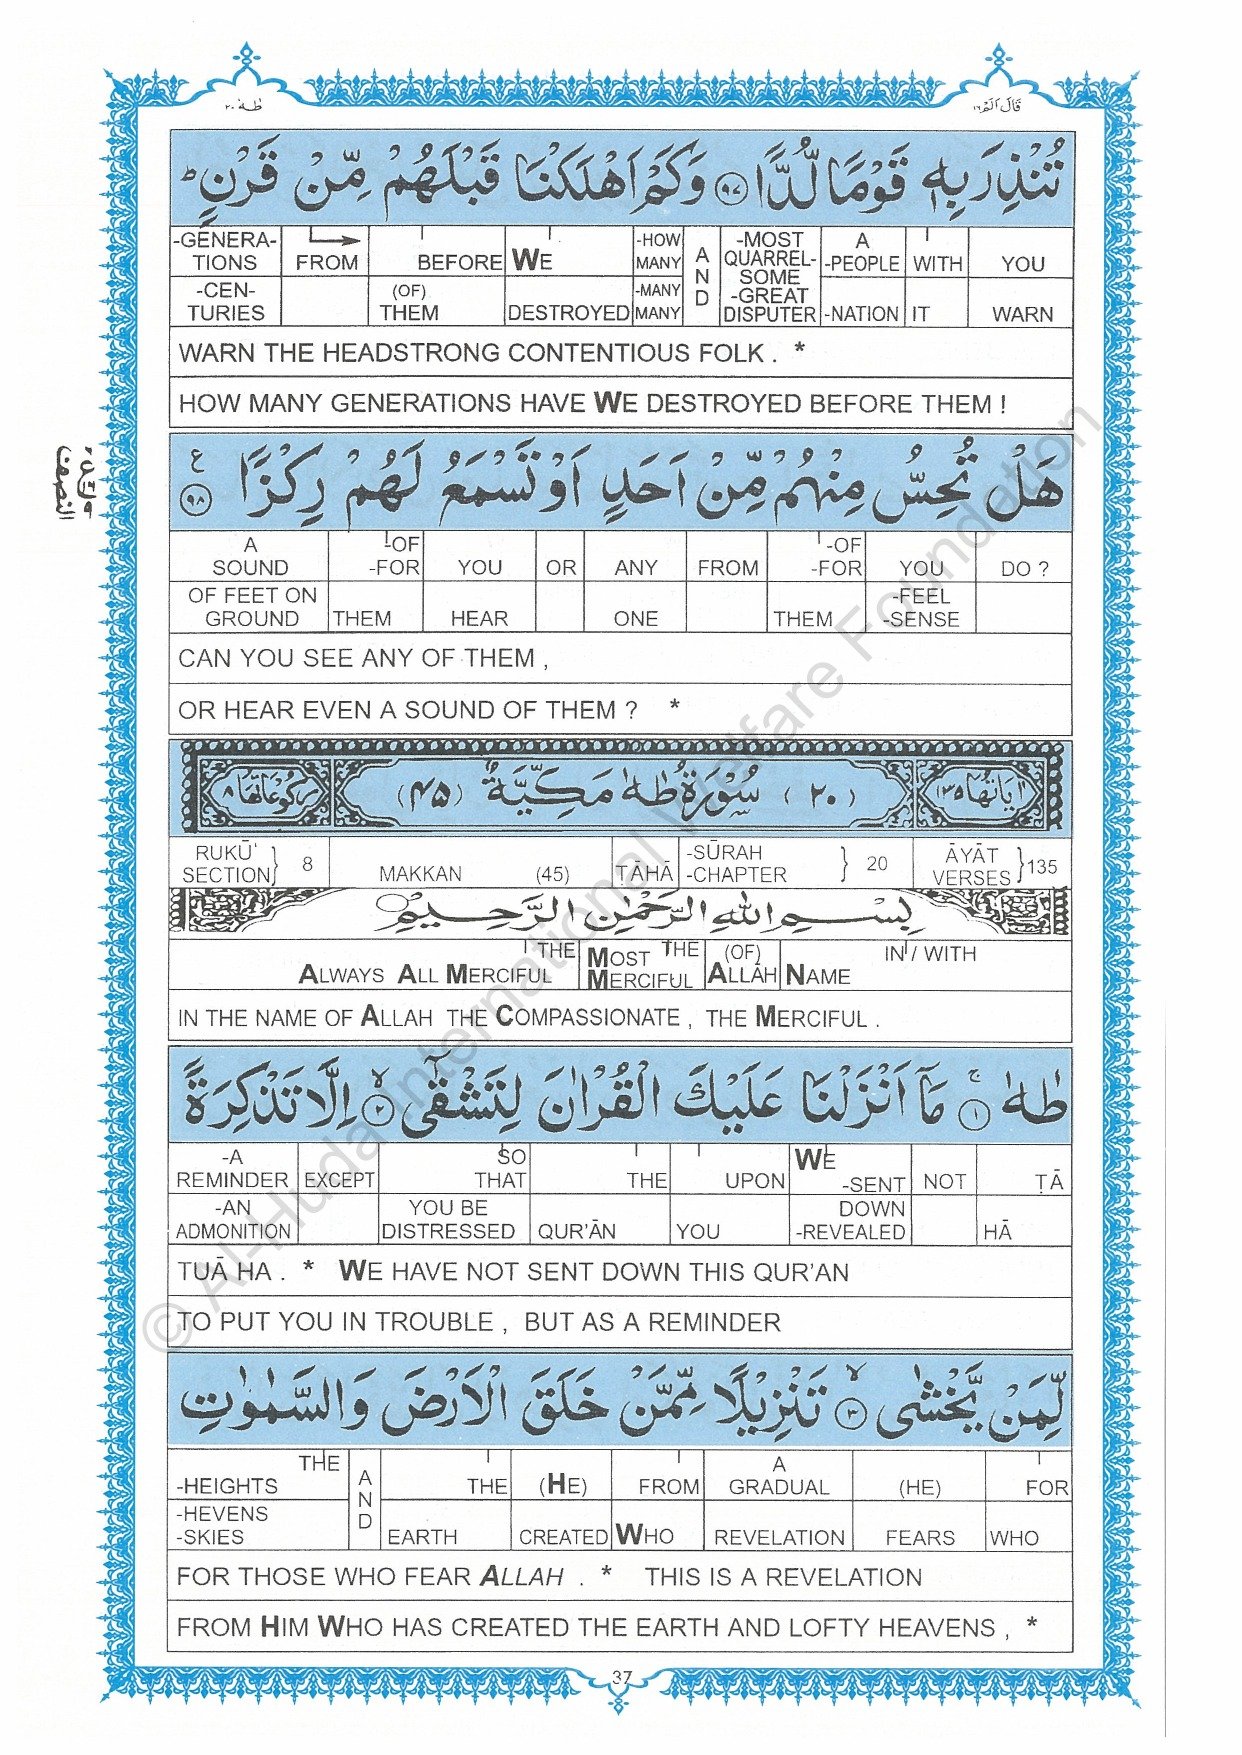 طٰهٰ ٢٠
قَالَ اَلَمْ ١٦
تُنْذِرَ بِهٖ قَوْمًا لُّدًّا ﴿٩٧﴾ وَكَمْ اَهْلَكْنَا قَبْلَهُمْ مِّنْ قَرْنٍ ؕ
-GENERA- FROM BEFORE WE -HOW A -MOST A WITH YOU
TIONS MANY N QUARREL- -PEOPLE
-CEN- (OF) DESTROYED -MANY D SOME -NATION IT WARN
TURIES THEM MANY -GREAT
DISPUTER
WARN THE HEADSTRONG CONTENTIOUS FOLK . *
HOW MANY GENERATIONS HAVE WE DESTROYED BEFORE THEM !
هَلْ تُحِسُّ مِنْهُمْ مِّنْ اَحَدٍ اَوْ تَسْمَعُ لَهُمْ رِكْزًا ﴿٩٨﴾ ع
A -OF -OF
SOUND -FOR YOU OR ANY FROM -FOR YOU DO ?
OF FEET ON -FEEL
GROUND THEM HEAR ONE THEM -SENSE
CAN YOU SEE ANY OF THEM ,
OR HEAR EVEN A SOUND OF THEM ? *
اٰيَاتُهَا ١٣٥ (٢٠) سُوْرَةُ طٰهٰ مَكِّيَّةٌ (٤٥) رُكُوْعَاتُهَا ٨
RUKŪ' 8 -SŪRAH } 20 ĀYĀT } 135
SECTION } MAKKAN (45) TĀHĀ -CHAPTER VERSES
بِسْمِ اللهِ الرَّحْمٰنِ الرَّحِيْمِ
THE MOST THE (OF) IN / WITH
ALWAYS ALL MERCIFUL MERCIFUL ALLĀH NAME
IN THE NAME OF ALLAH THE COMPASSIONATE , THE MERCIFUL .
طٰهٰ ﴿١﴾ مَاۤ اَنْزَلْنَا عَلَيْكَ الْقُرْاٰنَ لِتَشْقٰٓى ﴿٢﴾ اِلَّا تَذْكِرَةً
-A SO WE
REMINDER EXCEPT THAT THE UPON -SENT NOT ṬĀ
-AN YOU BE DOWN
ADMONITION DISTRESSED QUR'ĀN YOU -REVEALED HĀ
TUĀ HA . * WE HAVE NOT SENT DOWN THIS QUR'AN
TO PUT YOU IN TROUBLE , BUT AS A REMINDER
لِّمَنْ يَّخْشٰى ﴿٣﴾ تَنْزِيْلًا مِّمَّنْ خَلَقَ الْاَرْضَ وَالسَّمٰوٰتِ
THE A A
-HEIGHTS N THE (HE) FROM GRADUAL (HE) FOR
-HEVENS D
-SKIES EARTH CREATED WHO REVELATION FEARS WHO
FOR THOSE WHO FEAR ALLAH . * THIS IS A REVELATION
FROM HIM WHO HAS CREATED THE EARTH AND LOFTY HEAVENS , *
37
© Al-Huda International Welfare Foundation